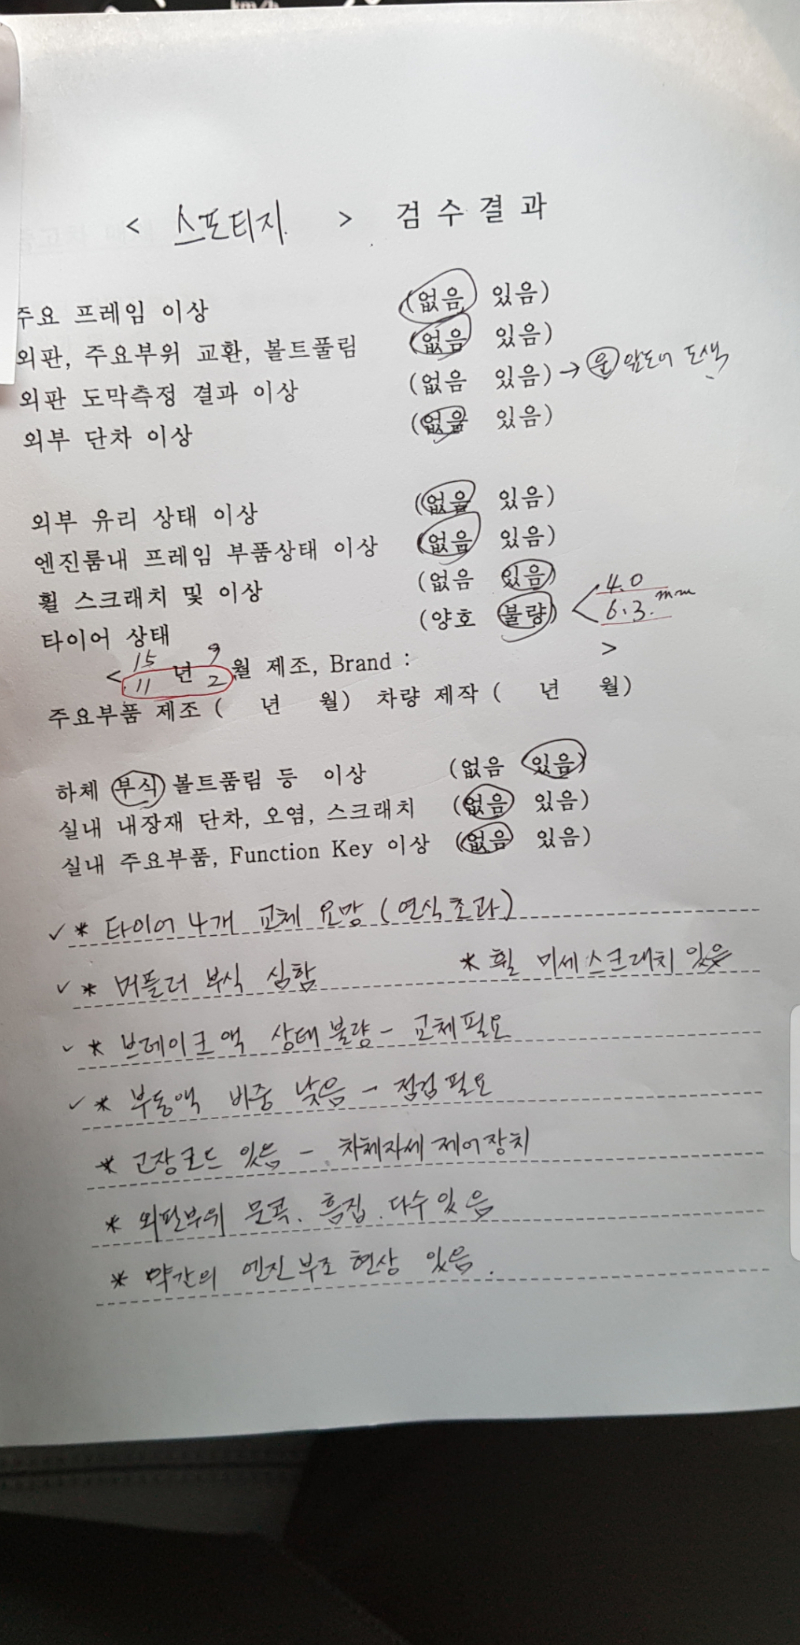 < 스포티지 > 검 수 결 과
주요 프레임 이상 (없음 있음)
외판, 주요부위 교환, 볼트풀림 (없음 있음)
외판 도막측정 결과 이상 (없음 있음) → 운 앞도어 도색
외부 단차 이상 (없음 있음)
외부 유리 상태 이상 (없음 있음)
엔진룸내 프레임 부품상태 이상 (없음 있음)
휠 스크래치 및 이상 (없음 있음)
타이어 상태 (양호 불량) < 4.0
6.3. mm
15 9
< 년 월 제조, Brand : >
11 2
주요부품 제조 ( 년 월) 차량 제작 ( 년 월)
하체 부식 볼트품림 등 이상 (없음 있음)
실내 내장재 단차, 오염, 스크래치 (없음 있음)
실내 주요부품, Function Key 이상 (없음 있음)
✓ * 타이어 4개 교체 요망 (연식초과)
✓ * 머플러 부식 심함 * 휠 미세스크래치 있음
✓ * 브레이크액 상태불량 - 교체필요
✓ * 부동액 비중 낮음 - 점검필요
* 고장코드 있음 - 차체자세제어장치
* 외판부위 문콕. 흠집. 다수있음
* 약간의 엔진부조현상 있음.